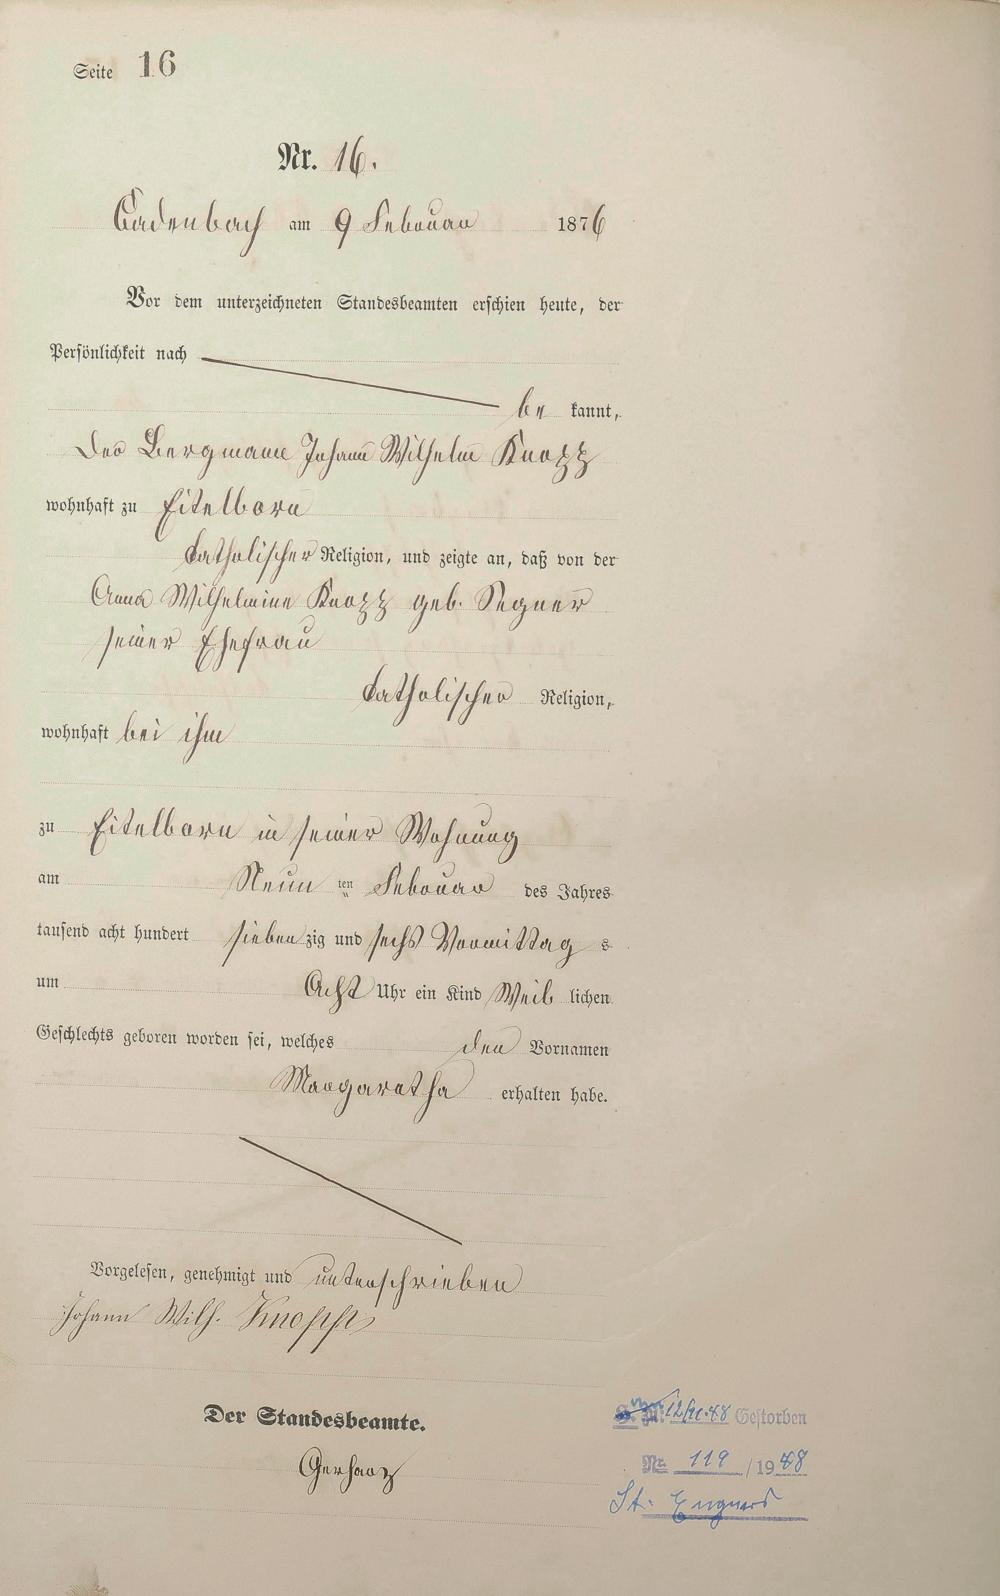 Seite 16
Nr. 16.
Cadenbach am 9 Februar 1876
Vor dem unterzeichneten Standesbeamten erschien heute, der
Persönlichkeit nach
be kannt,
Der Bergmann Johann Wilhelm Knopp
wohnhaft zu Eitelborn
katholischer Religion, und zeigte an, daß von der
Anna Wilhelmine Knopp geb. Segner
seiner Ehefrau
katholischer Religion,
wohnhaft bei ihm
zu Eitelborn in seiner Wohnung
am Neun ten Februar des Jahres
tausend acht hundert sieben zig und sechs Vormittag s
um Acht Uhr ein Kind Weib lichen
Geschlechts geboren worden sei, welches den Vornamen
Margaretha erhalten habe.
Vorgelesen, genehmigt und unterschrieben
Johann Wilh. Knopp
Der Standesbeamte.
Gerharz
Gestorben
Nr. 119 / 1948
St. Engers